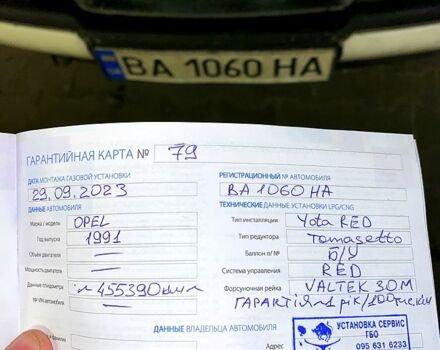 BA 1060 HA
ГАРАНТИЙНАЯ КАРТА № 79
ДАТА МОНТАЖА ГАЗОВОЙ УСТАНОВКИ
29.09.2023
РЕГИСТРАЦИОННЫЙ № АВТОМОБИЛЯ
BA 1060 HA
ДАННЫЕ АВТОМОБИЛЯ
Марка / модель OPEL
Год выпуска 1991
Объём двигателя —
Мощность двигателя —
Данные спидометра 455390 км
№ VIN автомобиля
ТЕХНИЧЕСКИЕ ДАННЫЕ УСТАНОВКИ LPG/CNG
Тип инсталляции Yota RED
Тип редуктора Tomasetto
Баллон п/№ Б/У
Система управления RED
Форсуночная рейка VALTEK 30M
ГАРАНТІЯ 1 рік/100 тис км
ДАННЫЕ ВЛАДЕЛЬЦА АВТОМОБИЛЯ
фамилия
УСТАНОВКА СЕРВИС
ГБО
095 631 6233